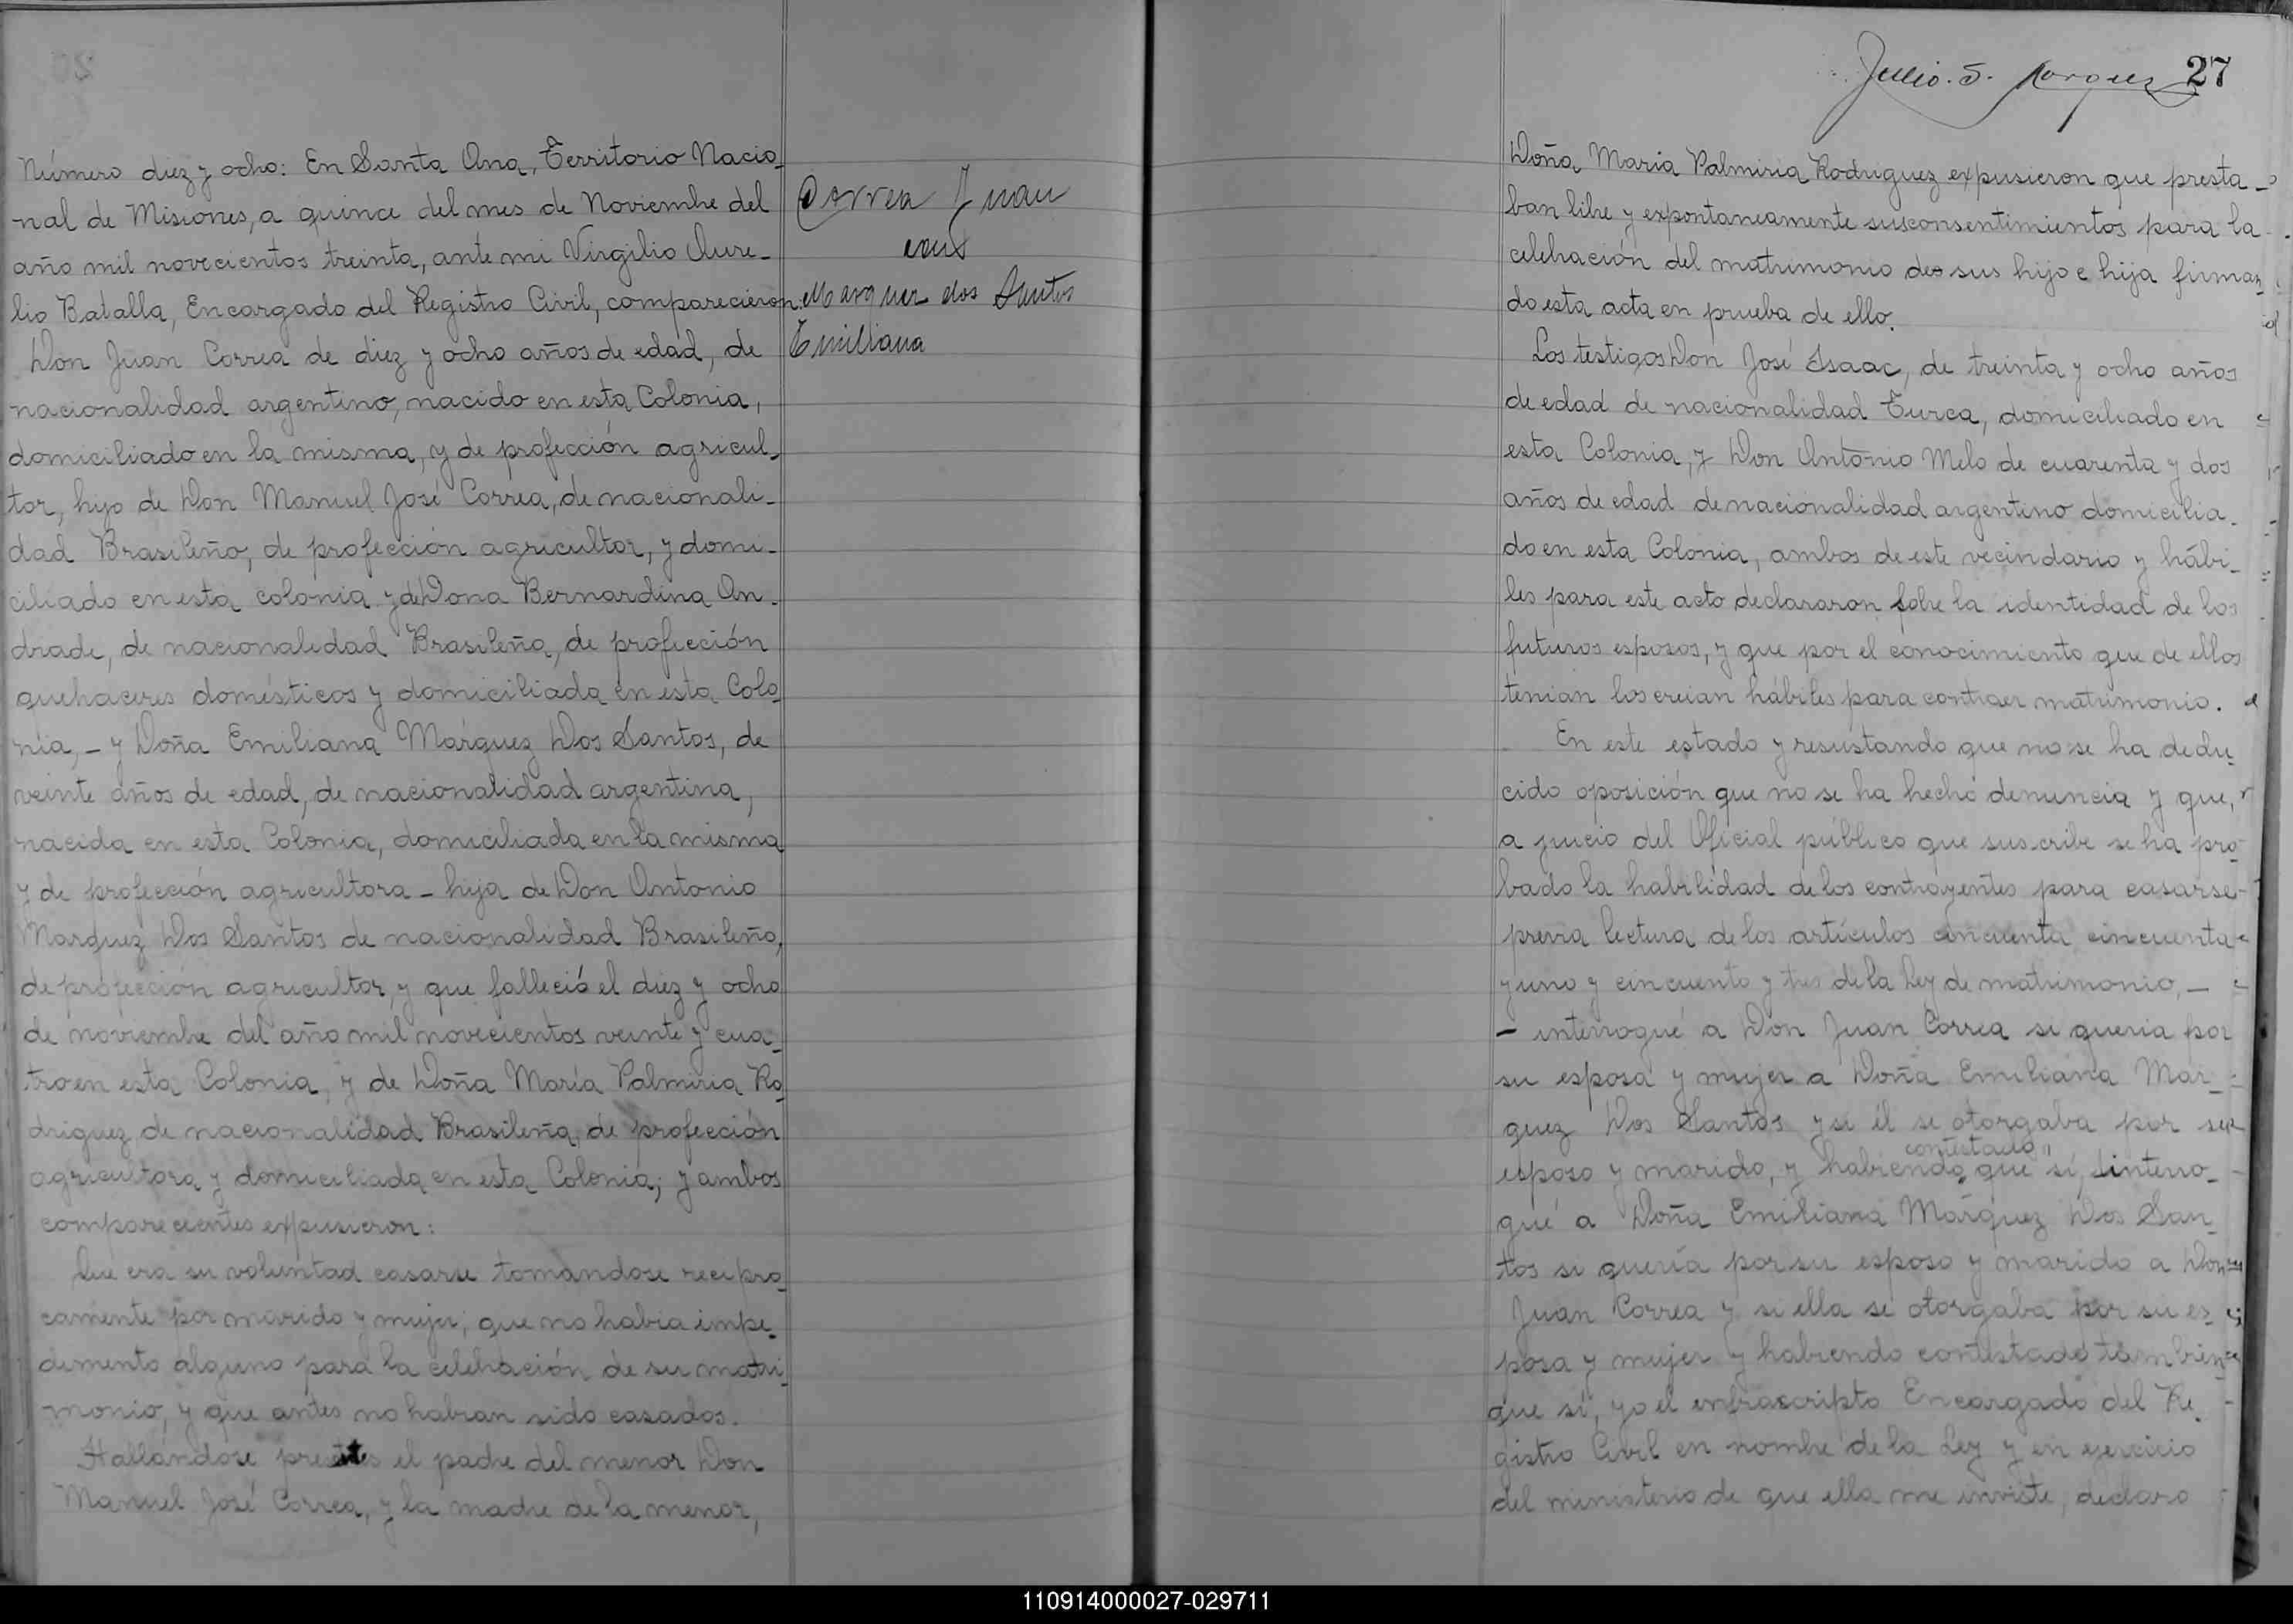 Número diez y ocho: En Santa Ana, Territorio Nacio_
nal de Misiones, a quince del mes de Noviembre del
año mil novecientos treinta, ante mi Virgilio Aure_
lio Batalla, Encargado del Registro Civil, comparecieron:
Don Juan Correa de diez y ocho años de edad, de
nacionalidad argentino, nacido en esta Colonia,
domiciliado en la misma, y de profección agricul_
tor, hijo de Don Manuel José Correa, de nacionali_
dad Brasileño, de profección agricultor, y domi_
ciliado en esta colonia y de Dona Bernardina An_
drade, de nacionalidad Brasileña, de profección
quehaceres domésticos y domiciliada en esta Colo_
nia, _ y Doña Emiliana Márquez Dos Santos, de
veinte años de edad, de nacionalidad argentina,
nacida en esta Colonia, domiciliada en la misma
y de profección agricultora _ hija de Don Antonio
Marquez Dos Santos de nacionalidad Brasileño,
de profección agricultor, y que falleció el diez y ocho
de noviembre del año mil novecientos veinte y cua_
tro en esta Colonia, y de Doña María Palmiria Ro_
driguez de nacionalidad Brasileña, de profección
agricultora y domiciliada en esta Colonia; y ambos
comparecientes expusieron:
Que era su voluntad casarse tomandose recipro_
camente por marido y mujer; que no habia impe_
dimento alguno para la celebración de su matri_
monio, y que antes no habian sido casados.
Hallándose el padre del menor Don
Manuel José Correa, y la madre de la menor,
Correa Juan
con
Marquez dos Santos
Emiliana
Julio. S. Marquez
27
Doña Maria Palmiria Rodriguez expusieron que presta_
ban libre y expontaneamente sus consentimientos para la
celebración del matrimonio de sus hijo e hija firman_
do esta acta en prueba de ello.
Los testigos Don José Isaac, de treinta y ocho años
de edad de nacionalidad Turca, domiciliado en
esta Colonia, y Don Antonio Melo de cuarenta y dos
años de edad de nacionalidad argentino domicilia_
do en esta Colonia, ambos de este vecindario y hábi_
les para este acto declararon sobre la identidad de los
futuros esposos, y que por el conocimiento que de ellos
tenian los creian hábiles para contraer matrimonio.
En este estado y resustando que no se ha dedu_
cido oposición que no se ha hecho denuncia y que,
a juicio del Oficial público que suscribe se ha pro_
bado la habilidad de los contrayentes para casarse_
previa lectura de los artículos cincuenta cincuenta
y uno y cincuenta y tres de la Ley de matrimonio, _
_ interrogué a Don Juan Correa si queria por
su esposa y mujer a Doña Emiliana Mar_
quez Dos Santos y si él se otorgaba por su
contestado
esposo y marido, y habiendo que sí, interro_
gué a Doña Emiliana Márquez Dos San_
tos si quería por su esposo y marido a Don
Juan Correa y si ella se otorgaba por su es_
posa y mujer y habiendo contestado tambien
que sí, yo el infrascripto Encargado del Re_
gistro Civil en nombre de la Ley y en ejercicio
del ministerio de que ella me inviste, declaro
110914000027-029711